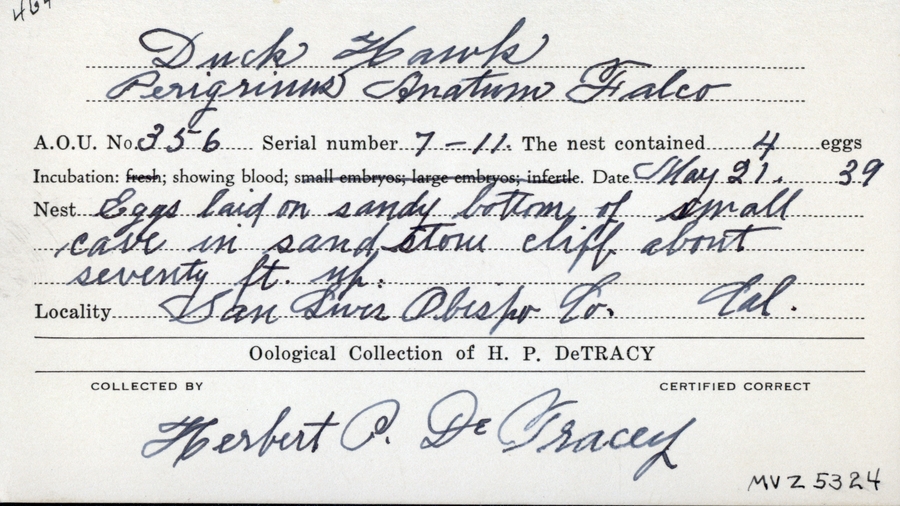 464
Duck Hawk
Perigrinus Anatum Falco
A.O.U. No. 356 Serial number 7-11. The nest contained 4 eggs
Incubation: fresh; showing blood; small embryos; large embryos; infertile. Date May 21. 39
Nest Eggs laid on sandy bottom of small
cave in sand stone cliff about
seventy ft. up.
Locality San Luis Obispo Co. Cal.
Oological Collection of H. P. DeTRACY
COLLECTED BY CERTIFIED CORRECT
Herbert P. De Tracey
MVZ 5324